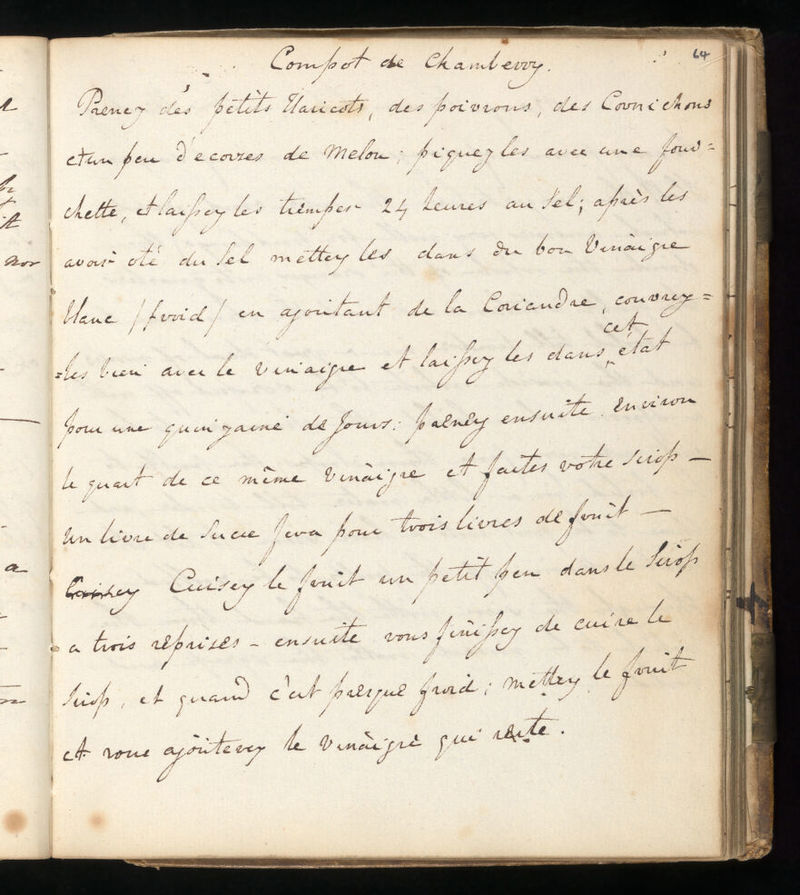 64
Compot de Chamberry.
Preney des petits Haricots, des poivrons, des Cornichons
et un peu d'ecorses de Melon; piqueyles avec une four=
chette, et laissey les tremper 24 heures au Sel; après les
avoir oté du Sel mettey les dans du bon Vinaigre
blanc /froid/ en ajoutant de la Coriandre, couvrey=
=les bien avec le vinaigre et laissey les dans cet état
pour une quinzaine de Jours: preney ensuite environ
le quart de ce même Vinaigre et faites votre Sirop —
un livre de Sucre sera pour trois livres de fruit —
Cuisey Cuisey le fruit un petit peu dans le Sirop
a trois reprises - ensuite vous finissey de cuire le
Sirop, et quand c'est presque froid; mettey le fruit
et vous ajouterey le Vinaigre qui reste.
nor
a